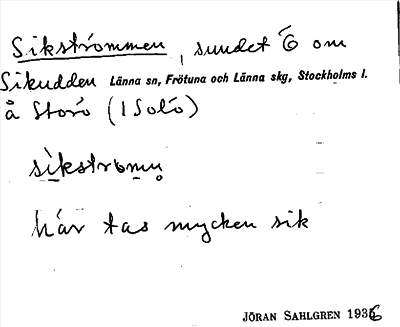 Sikströmmen, sundet Ö om
Sikudden Länna sn, Frötuna och Länna skg, Stockholms l.
å Storö (I Solö)
sìkstrømn̥
här tas mycken sik
JÖRAN SAHLGREN 1936